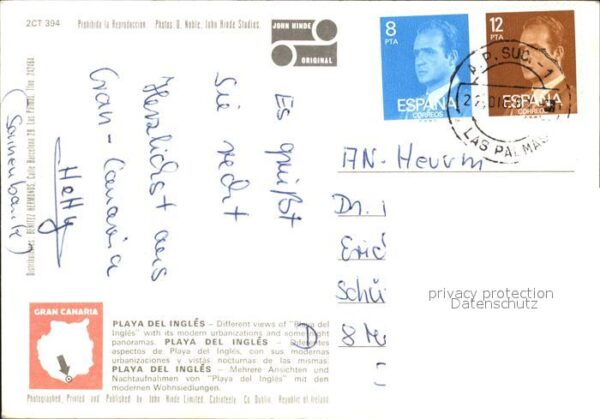 2CT 394
Prohibida la Reproduccion. Photos D. Noble, John Hinde Studios.
JOHN HINDE
ORIGINAL
8
PTA
ESPAÑA
CORREOS
12
PTA
ESPAÑA
CORREOS
SUC.-1
LAS PALMAS
Es grüßt
Sie recht
Herzlichst aus
Gran-Canaria
Hetty
(Sonnenbank)
AN-Herrn
Dr.
Eric
Schü
D 8 M
privacy protection
Datenschutz
GRAN CANARIA
PLAYA DEL INGLÉS – Different views of "Playa del
Inglés" with its modern urbanizations and some night
panoramas. PLAYA DEL INGLÉS – Diferentes
aspectos de Playa del Inglés, con sus modernas
urbanizaciones y vistas nocturnas de las mismas.
PLAYA DEL INGLÉS – Mehrere Ansichten und
Nachtaufnahmen von "Playa del Inglés" mit den
modernen Wohnsiedlungen.
Photographed, Printed and Published by John Hinde Limited, Cabinteely, Co. Dublin, Republic of Ireland